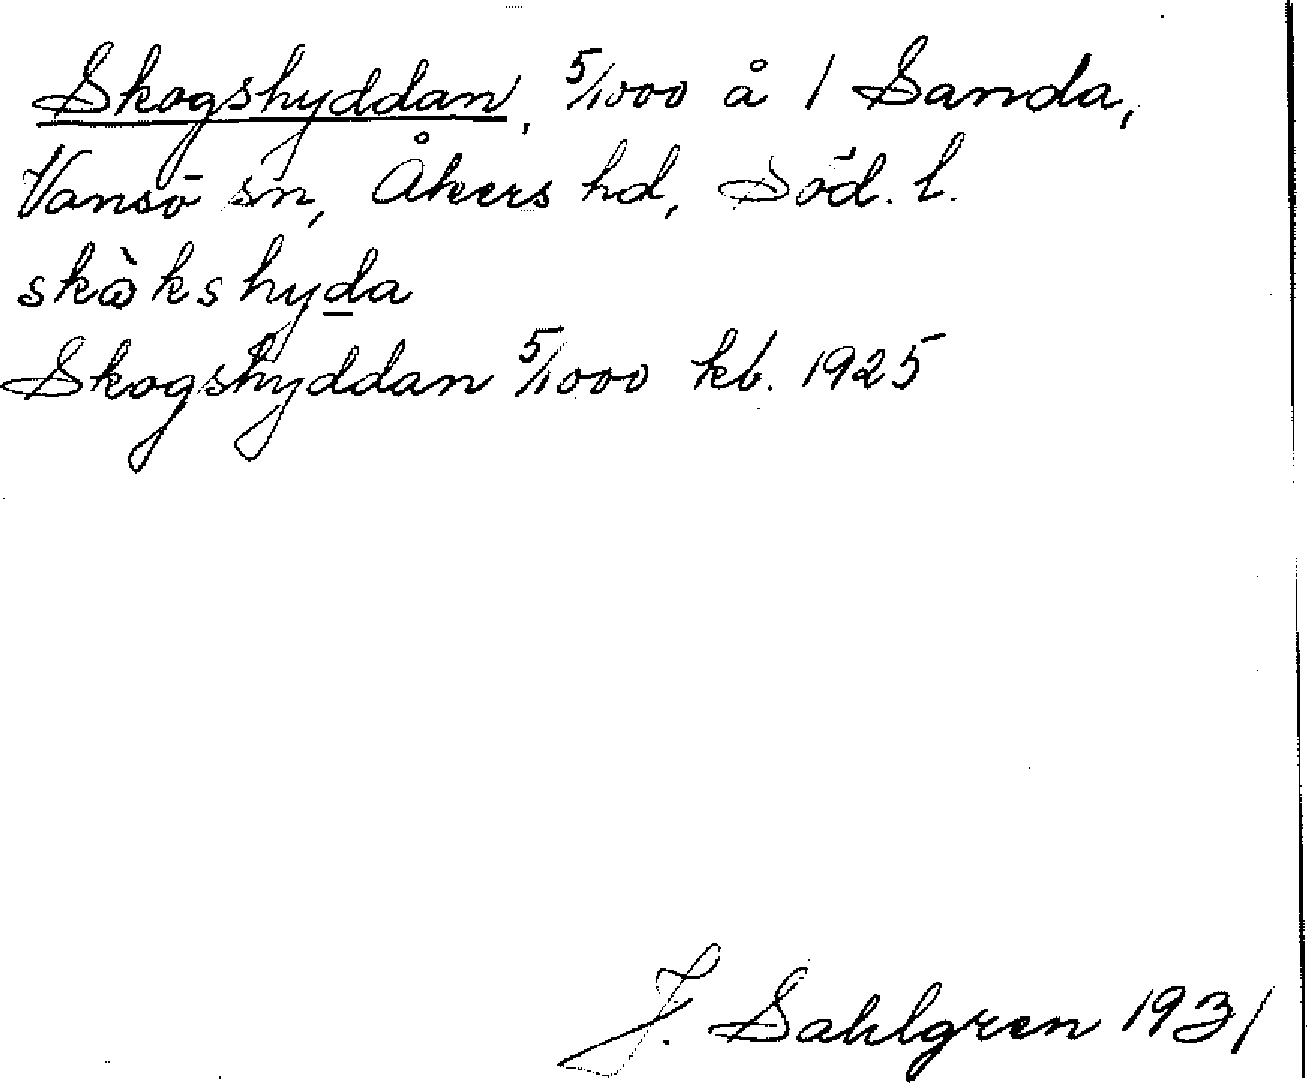 Skogshyddan, 5/1000 å 1 Sanda,
Vansö sn, Åkers hd, Söd. l.
skò̀kshyd̲a
Skogshyddan 5/1000 kb. 1925
J. Sahlgren 1931